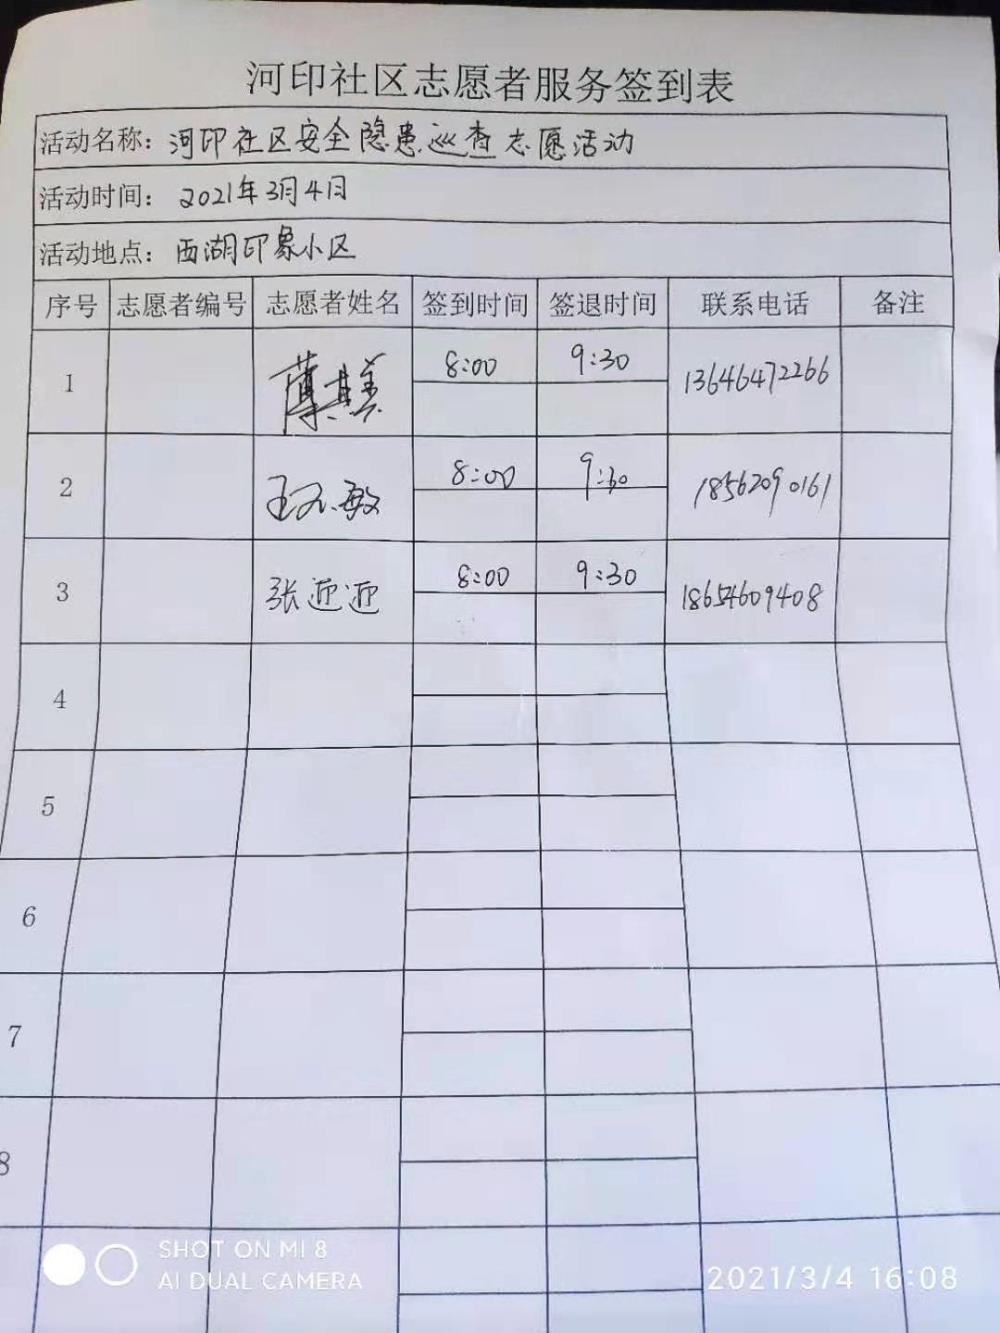 河印社区志愿者服务签到表
活动名称：河印社区安全隐患巡查志愿活动
活动时间：2021年3月4日
活动地点：西湖印象小区
序号 志愿者编号 志愿者姓名 签到时间 签退时间 联系电话 备注
1 薄其美 8:00 9:30 13646472266
2 8:00 9:30 18562090161
3 张迎迎 8:00 9:30 18654609408
4
5
6
7
8
SHOT ON MI 8
AI DUAL CAMERA
2021/3/4 16:08